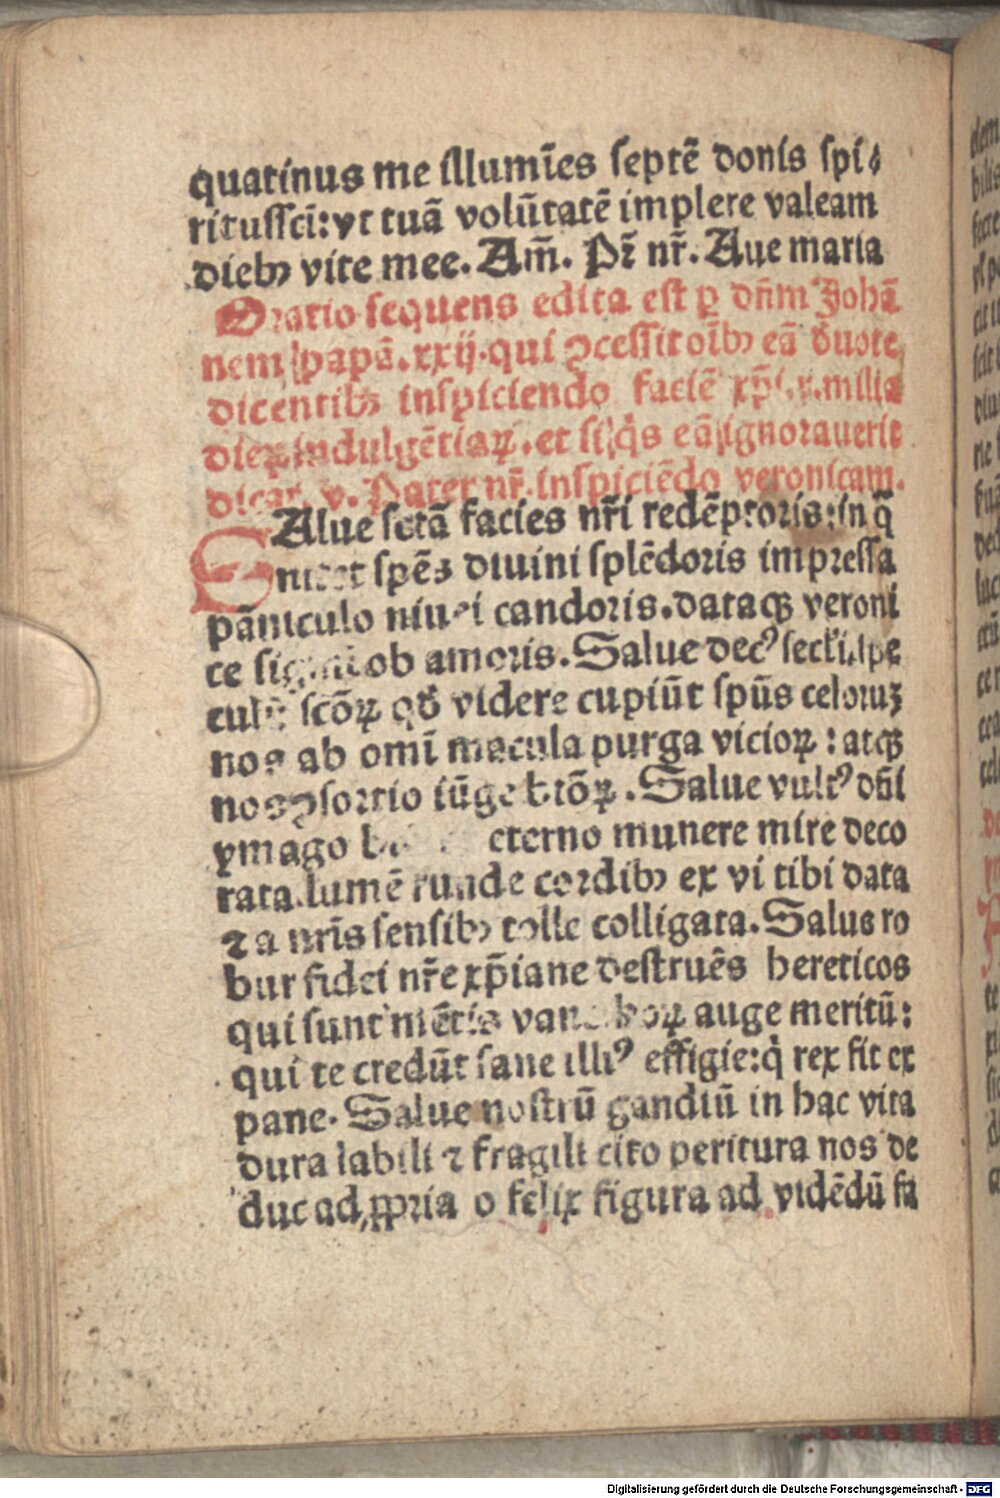 quatinus me illumīes septē donis spi⸗
ritussci̅: vt tuā volūtatē implere valeam
dieb⁹ vite mee. Am̅. Pr̅ nr̅. Aue maria
Oratio sequens edita est ꝑ dn̅m Johā
nem papā. xxij. qui ꝯcessit oīb⁹ eā duote
dicentib⁹ inspiciendo faciē xp̅i. v. milia
dieꝝ indulgētiaꝝ. et si q̇s eā ignorauerit
dicat. v. Pater nr̅. inspiciēdo veronicam.
SAlue sctā facies nr̅i redēptoris: in q̄
nitet spēs diuini splēdoris impressa
pāniculo niuei candoris. dataqꝫ veroni
ce ob amoris. Salue decꝰ secli spe
culū scōꝝ qd̕ videre cupiūt spūs celoruꝫ
nos ab omī macula purga vicioꝝ: atqꝫ
nos ꝯsortio iūge btōꝝ. Salue vultꝰ dn̅i
ymago eterno munere mire deco
rata. lumē funde cordib⁹ ex vi tibi data
⁊ a nr̅is sensib⁹ tolle colligata. Salus ro
bur fidei nr̅e xp̅iane destruēs hereticos
qui sunt mētis vane. hoꝝ auge meritū:
qui te credūt sane illiꝰ effigie: q̇ rex fit ex
pane. Salue nostrū gandiū in hac vita
dura labili ⁊ fragili cito peritura nos de
duc ad ꝓpria o felix figura ad vidēdū fa
Digitalisierung gefördert durch die Deutsche Forschungsgemeinschaft - DFG